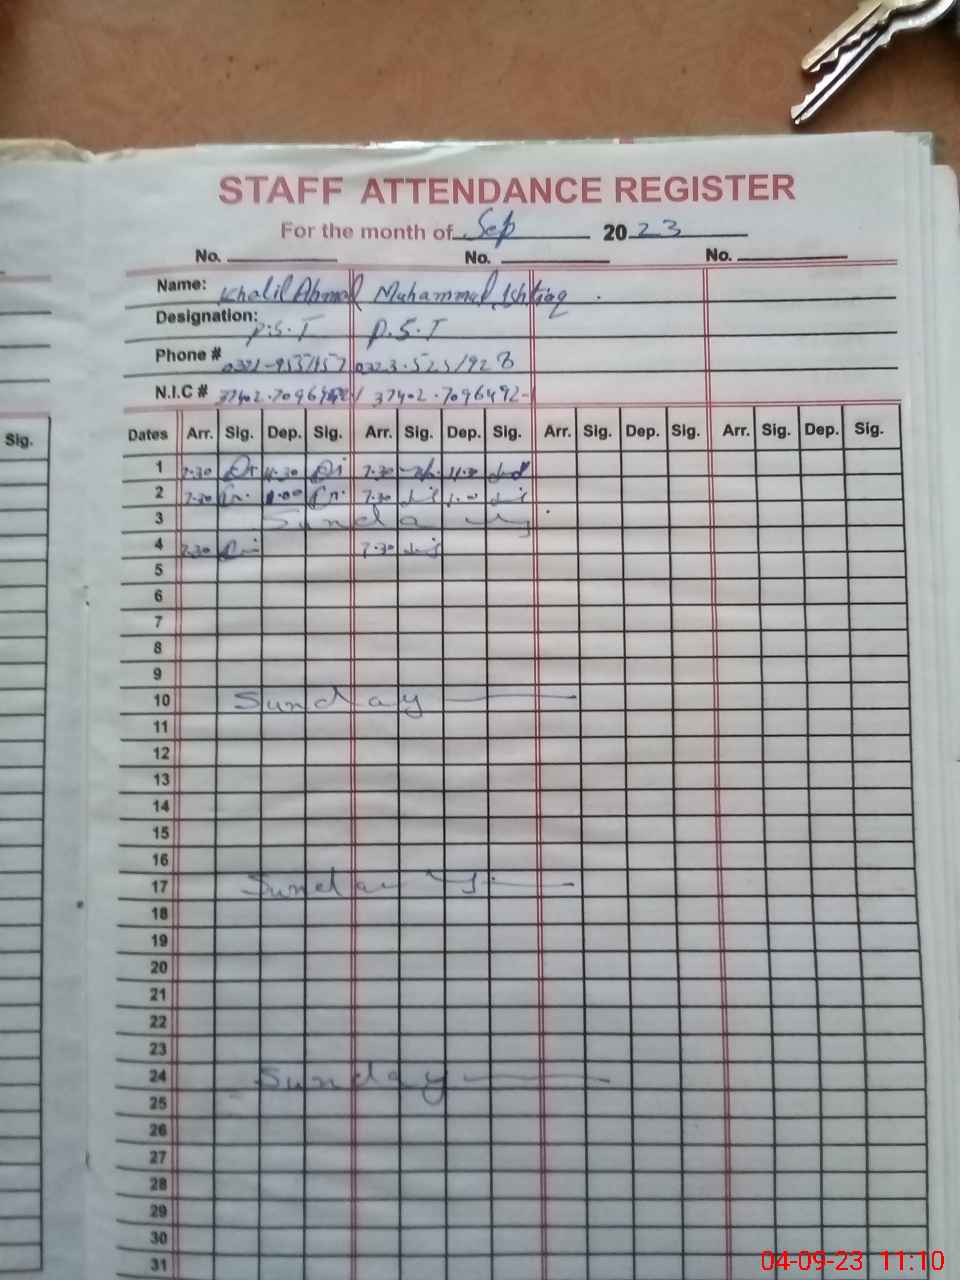 STAFF ATTENDANCE REGISTER
For the month of Sep 2023
No. No. No.
Name: Khalil Ahmad Muhammad Ishtiaq
Designation: P.S.T P.S.T
Phone # 0323.5251928
N.I.C # 37402.7096492-1
Sig. Dates Arr. Sig. Dep. Sig. Arr. Sig. Dep. Sig. Arr. Sig. Dep. Sig. Arr. Sig. Dep. Sig.
1 7.30 11.30 7.30 11.30
2 7.30 1.00 7.30 1.00
3 Sunday
4 7.30 7.30
5
6
7
8
9
10 Sunday
11
12
13
14
15
16
17 Sunday
18
19
20
21
22
23
24 Sunday
25
26
27
28
29
30
31
04-09-23 11:10